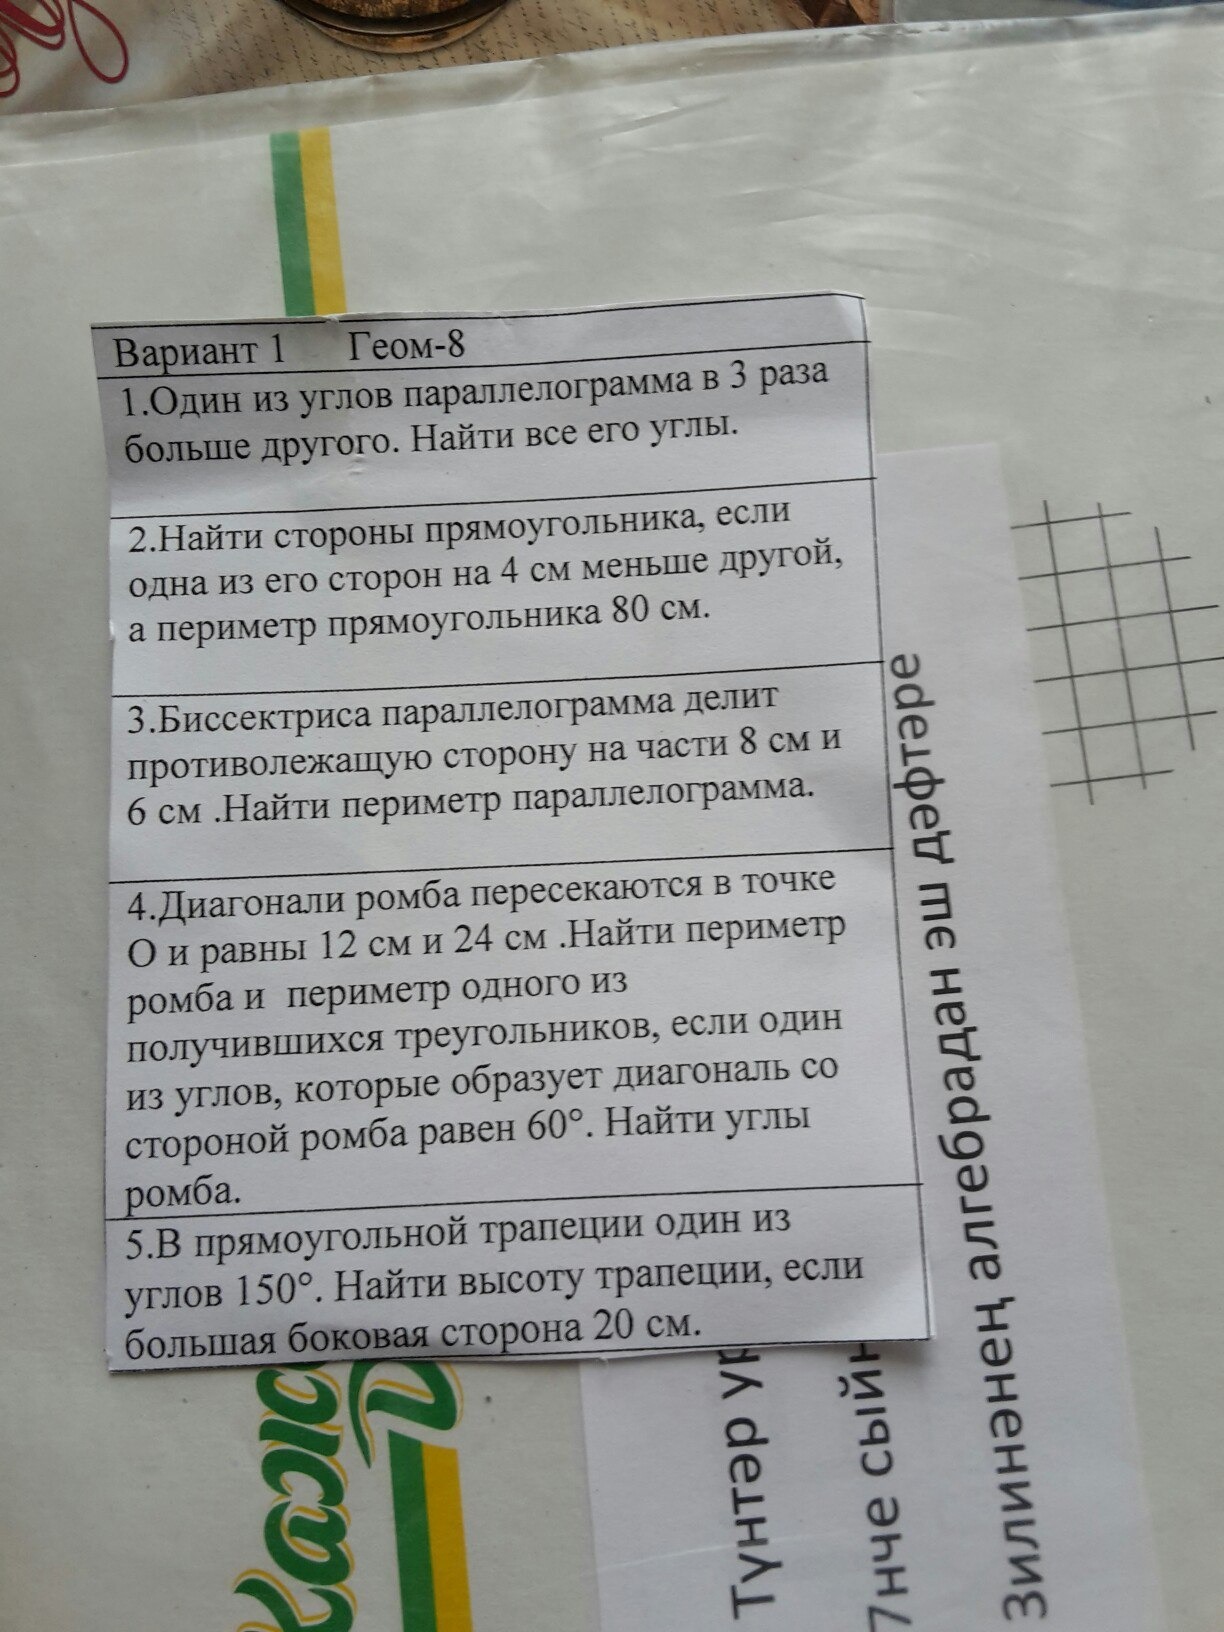 Вариант 1 Геом-8
1.Один из углов параллелограмма в 3 раза
больше другого. Найти все его углы.
2.Найти стороны прямоугольника, если
одна из его сторон на 4 см меньше другой,
а периметр прямоугольника 80 см.
3.Биссектриса параллелограмма делит
противолежащую сторону на части 8 см и
6 см .Найти периметр параллелограмма.
4.Диагонали ромба пересекаются в точке
О и равны 12 см и 24 см .Найти периметр
ромба и периметр одного из
получившихся треугольников, если один
из углов, которые образует диагональ со
стороной ромба равен 60°. Найти углы
ромба.
5.В прямоугольной трапеции один из
углов 150°. Найти высоту трапеции, если
большая боковая сторона 20 см.
Түнтәр
7нче сыйн
Зилиниең алгебрадан эш дәфтәре